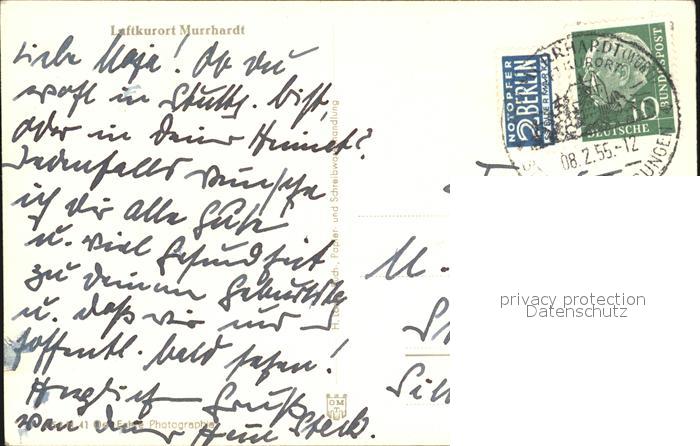 Luftkurort Murrhardt
Liebe Maja! Ob du
wohl in Stuttg. bist,
oder in Deiner Heimat?
Jedenfalls wünsche
ich dir alles Gute
u. viel Gesundheit
zu deinem Geburtstag
u. daß wir uns
hoffentl. bald sehen!
Herzlich Gruß
von deiner
Echte Photographie
Papier- und Schreibwarenhandlung
NOTOPFER
2 BERLIN
STEUERMARKE
10
DEUTSCHE
BUNDESPOST
MURRHARDT
KURORT
08.2.55.-12
M.
privacy protection
Datenschutz